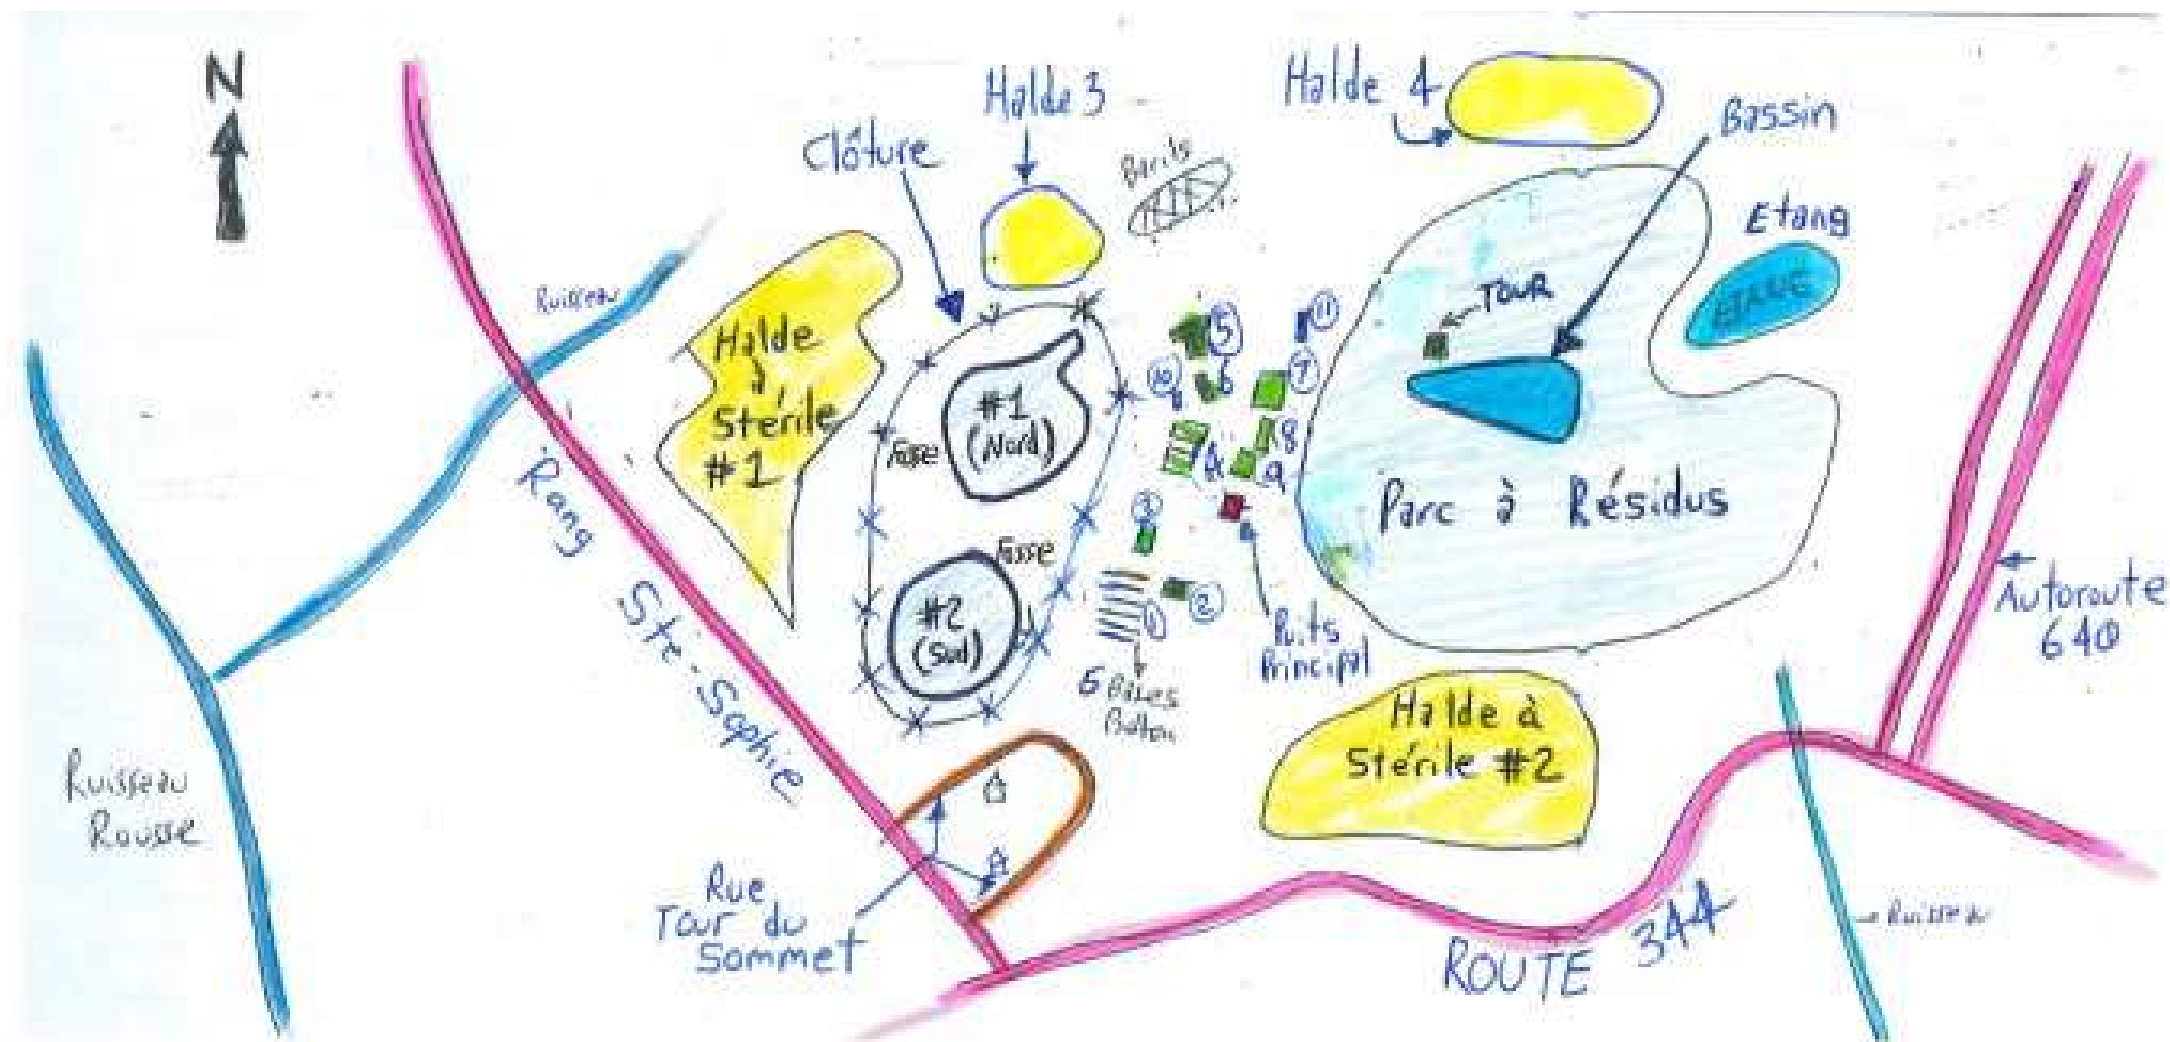 N
Halde 3
Halde 4
Bassin
Clôture
Barils
Etang
ETANG
Ruisseau
TOUR
Halde
à
Stérile
#1
#1
(Nord)
Fosse
5
11
10
6
7
8
9
3
Parc à Résidus
Rang Ste-Sophie
Fosse
#2
(Sud)
2
1
Puits
Principal
Autoroute
640
6 Bases
Béton
Halde à
Stérile #2
Ruisseau
Rousse
Rue
Tour du
Sommet
ROUTE 344
Ruisseau